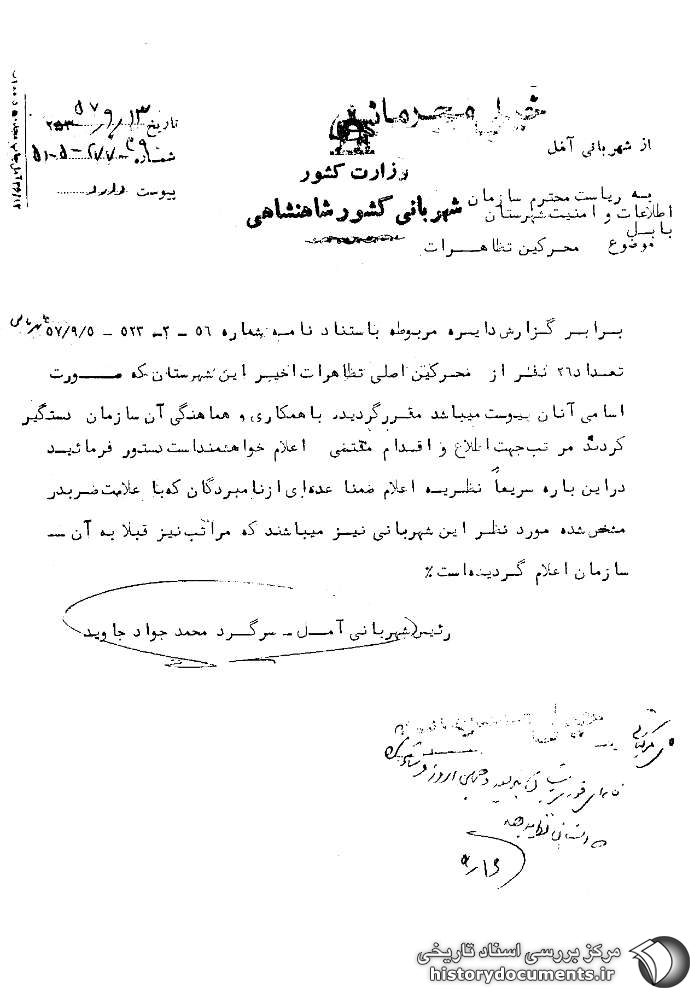 خیلی محرمانه
تاریخ ۵۷/۹/۱۳
شماره ۳۹-۲۷۷-۵-۵۱
پیوست دارد
از شهربانی آمل
وزارت کشور
شهربانی کشور شاهنشاهی
به ریاست محترم سازمان
اطلاعات و امنیت شهرستان
بابل
موضوع محرکین تظاهرات
برابر گزارش دایره مربوطه باستناد نامه شماره ۵۶ – ۲ – ۵۲۳ – ۵۷/۹/۵
تعداد ۲۶ نفر از محرکین اصلی تظاهرات اخیر این شهرستان که صورت
اسامی آنان پیوست میباشد مقرر گردید با همکاری و هماهنگی آن سازمان دستگیر
گردند مراتب جهت اطلاع و اقدام مقتضی اعلام خواهشمند است دستور فرمائید
در این باره سریعاً نظریه اعلام ضمنا عده‌ای از نامبردگان که با علامت ضربدر
مشخص شده مورد نظر این شهربانی نیز میباشند که مراتب نیز قبلا به آن
سازمان اعلام گردیده است ٪
رئیس شهربانی آمل – سرگرد محمد جواد جاوید
خیلی محرمانه
مرکز بررسی اسناد تاریخی
historydocuments.ir